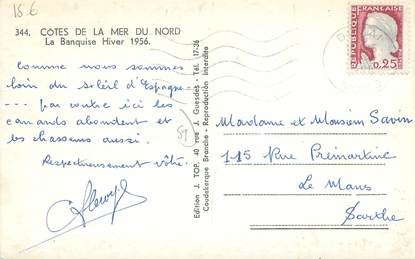 15 €
344. CÔTES DE LA MER DU NORD
La Banquise Hiver 1956.
Comme nous sommes
loin du soleil d'Espagne
--- par contre ici les
canards abondent et
les chasseurs aussi.
Respectueusement vôtre.
59
Edition J. TOP, 40 rue J. Guesde - Tél. 17-36
Coudekerque Branche - Reproduction interdite
REPUBLIQUE FRANÇAISE
0,25
Madame et Monsieur Savin
115 Rue Prémartine
Le Mans
Sarthe